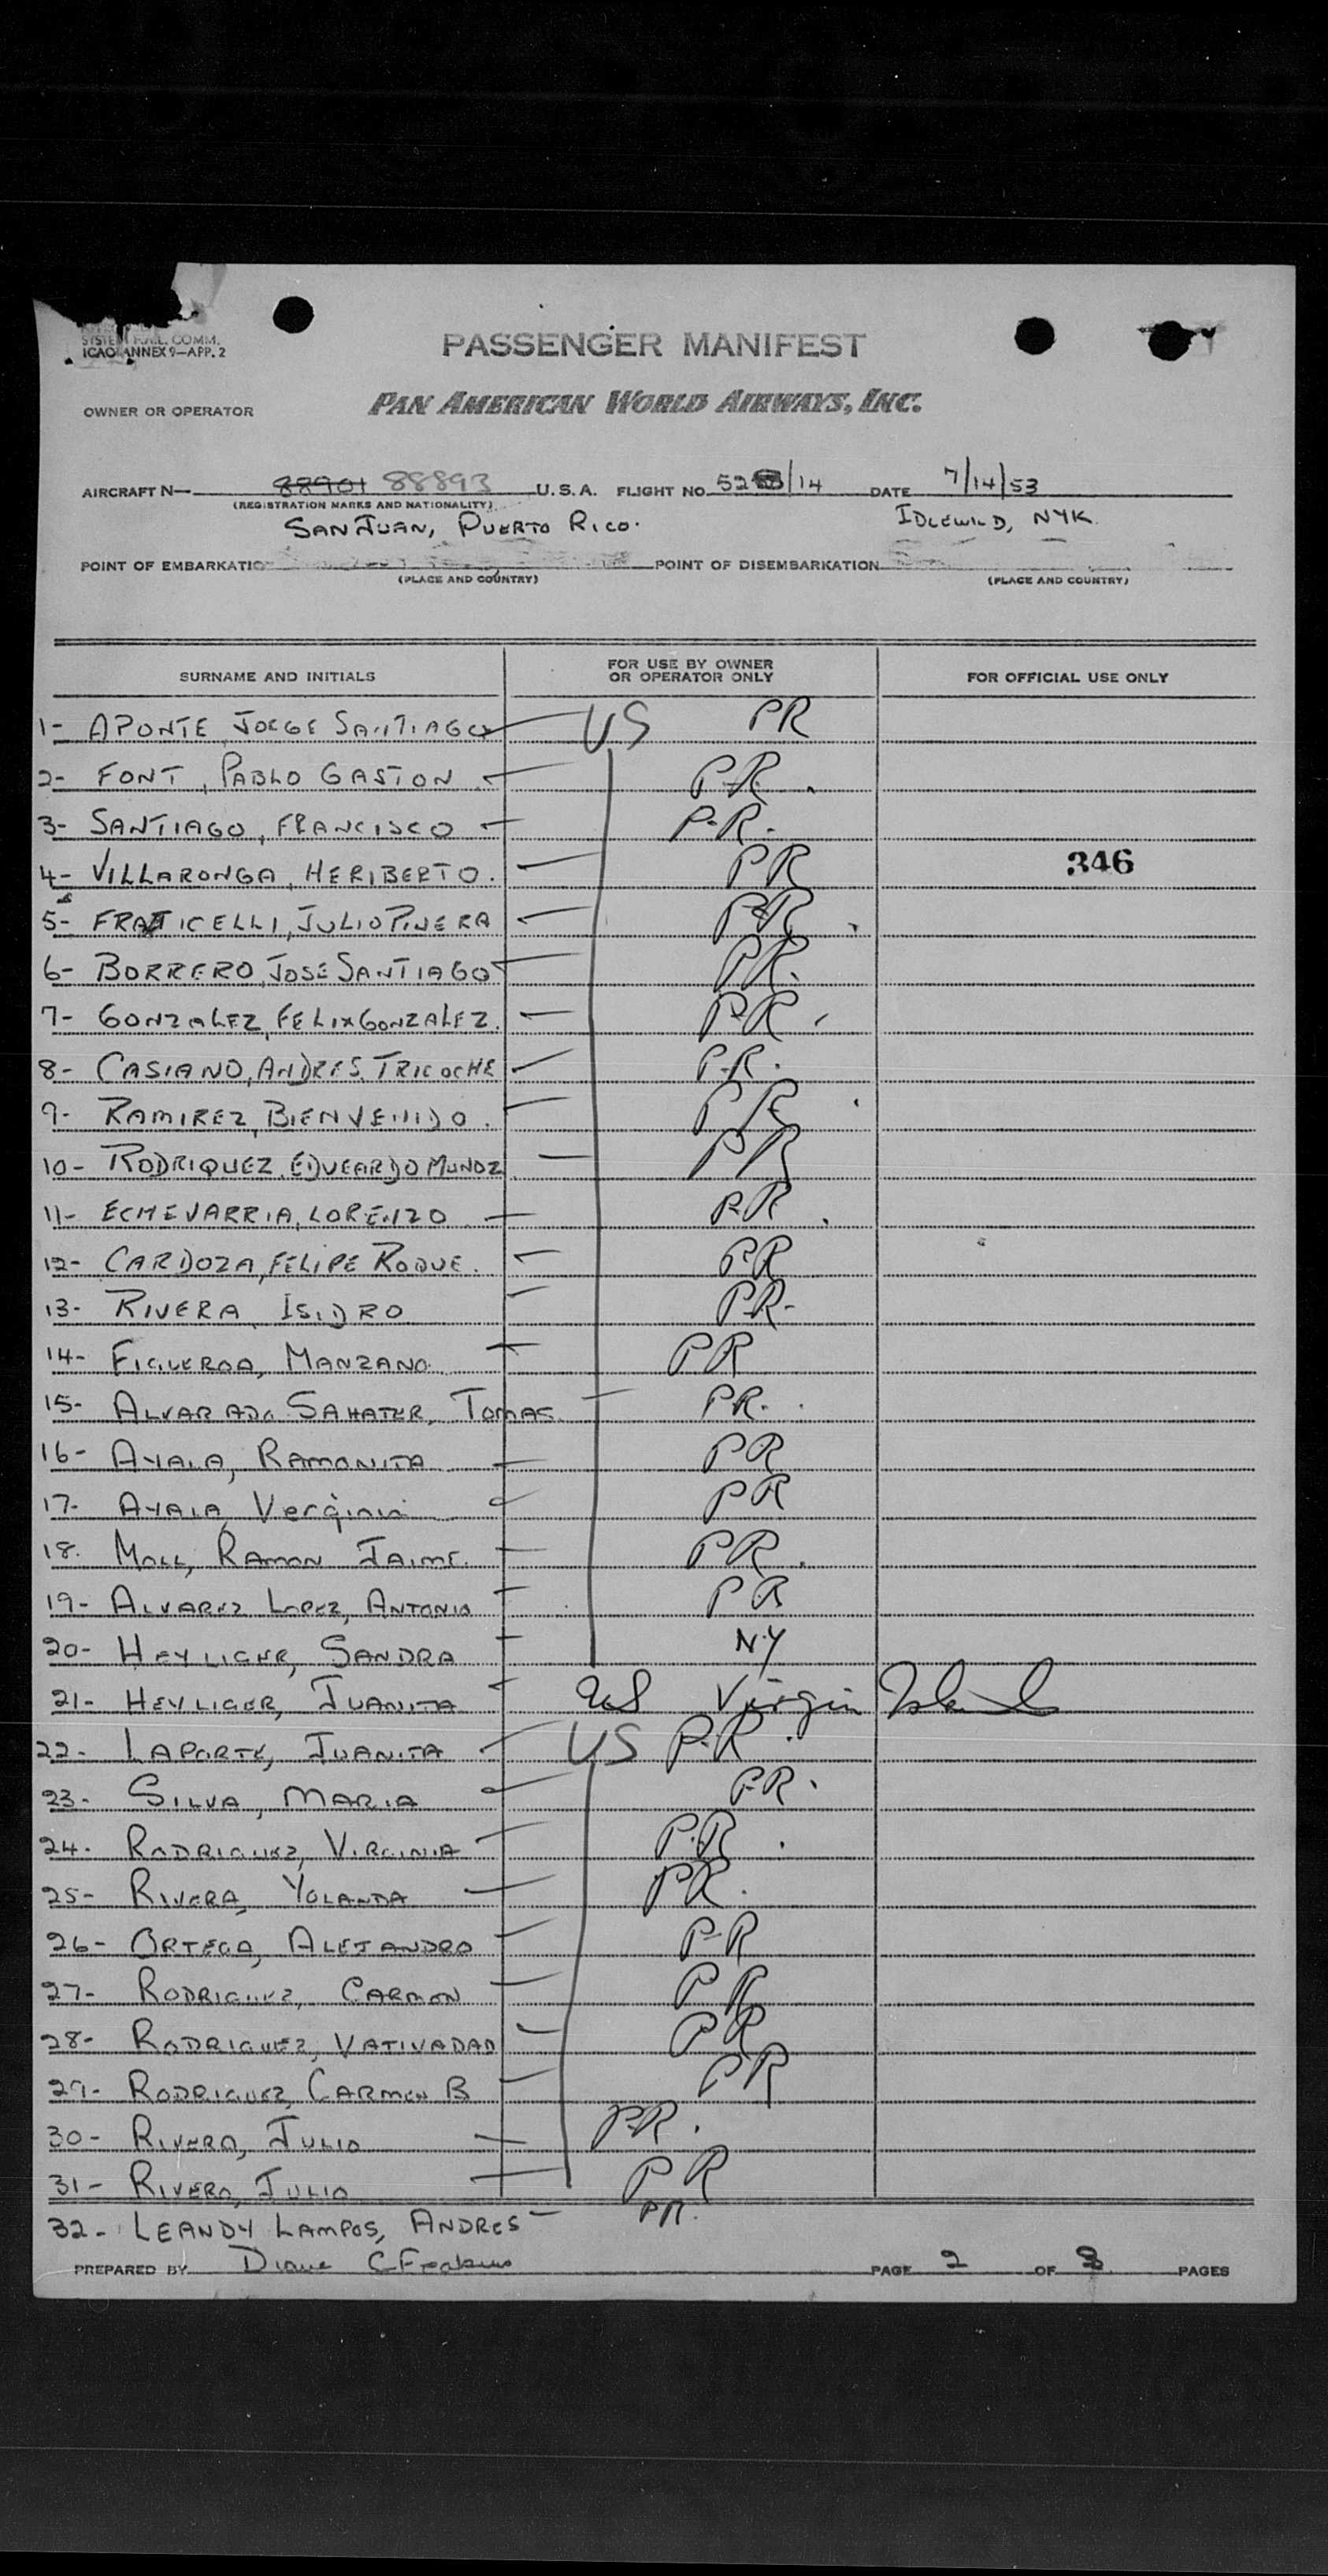 SYSTEM F.A.L. COMM.
ICAO ANNEX 9—APP. 2
PASSENGER MANIFEST
OWNER OR OPERATOR PAN AMERICAN WORLD AIRWAYS, INC.
AIRCRAFT N— 88901 88893 U.S.A. FLIGHT NO. 52 /14 DATE 7/14/53
(REGISTRATION MARKS AND NATIONALITY)
SAN JUAN, PUERTO RICO. IDLEWILD, NYK.
POINT OF EMBARKATIO POINT OF DISEMBARKATION
(PLACE AND COUNTRY) (PLACE AND COUNTRY)
SURNAME AND INITIALS FOR USE BY OWNER OR OPERATOR ONLY FOR OFFICIAL USE ONLY
1- APONTE, JORGE SANTIAGO US PR
2- FONT, PABLO GASTON P.R.
3- SANTIAGO, FRANCISCO P-R.
4- VILLARONGA, HERIBERTO. PR 346
5- FRATICELLI, JULIO PINERA PR
6- BORRERO, JOSE SANTIAGO PR.
7- GONZALEZ, FELIX GONZALEZ. PR
8- CASIANO, ANDRES. TRICOCHE P.R.
9- RAMIREZ, BIENVENIDO. PR
10- RODRIQUEZ, EDUEARDO MUNOZ PR
11- ECHEVARRIA, LORENZO PR
12- CARDOZA, FELIPE ROQUE. PR
13- RIVERA, ISIDRO PR-
14- FIGUEROA, MANZANO. PR
15- ALVARADO SAHATER, TOMAS. PR.
16- AYALA, RAMONITA PR
17- AYALA, Verginia PR
18. MOLL, RAMON JAIME. PR.
19- ALVAREZ LOPEZ, ANTONIO PR
20- HEYLIGER, SANDRA N.Y
21- HEYLIGER, JUANITA US Virgin Islands
22- LAPORTE, JUANITA US P.R.
23- SILVA, MARIA PR.
24- RODRIGUEZ, VIRGINIA P.R.
25- RIVERA, YOLANDA PR.
26- ORTEGA, ALEJANDRO P-R
27- RODRIGUEZ, CARMEN PR
28- RODRIGUEZ, VATIVADAD PR
29- RODRIGUEZ, CARMEN B PR
30- RIVERA, JULIO P.R.
31- RIVERO, JULIO PR
32- LEANDY LAMPOS, ANDRES PR.
PREPARED BY Diane C PAGE 2 OF 3 PAGES